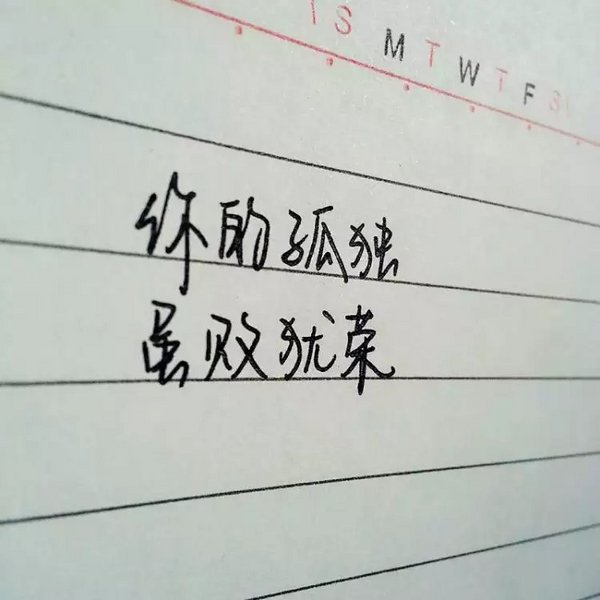 S M T W T F S
你的孤独
虽败犹荣